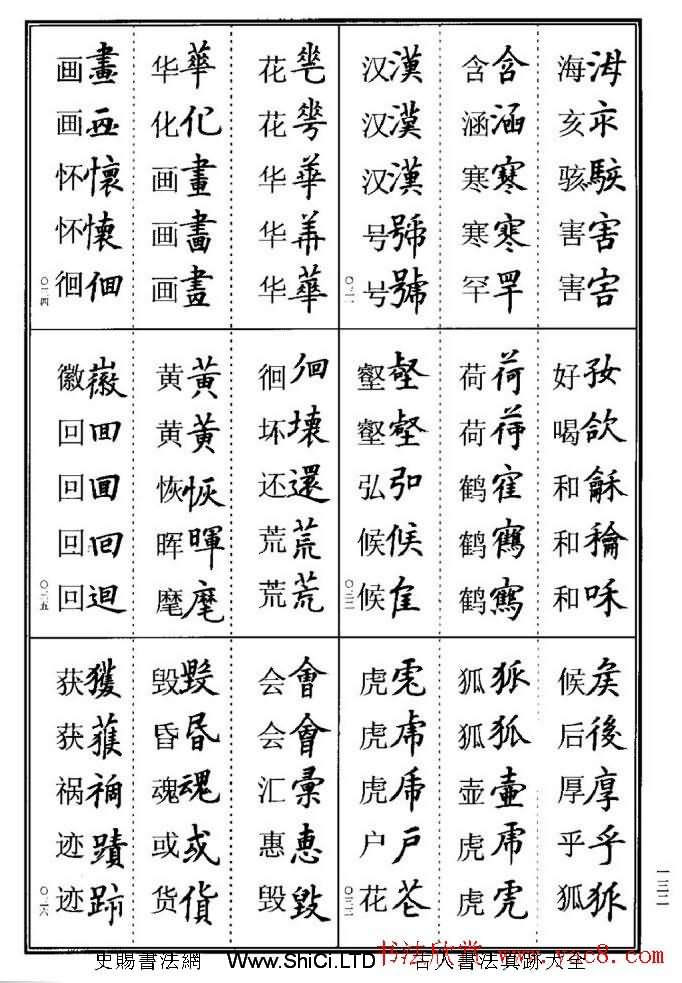 海海 亥亥 骇駭 害害 害害
含含 涵涵 寒寒 寒寒 罕罕
汉漢 汉漢 汉漢 号號 号號
〇二一
好好 喝欱 和龢 和 和咊
荷荷 荷荷 鹤寉 鹤鶴 鹤鶴
壑壑 壑壑 弘弘 候候 候
〇二二
候矦 后後 厚厚 乎乎 狐狐
狐狐 狐狐 壶壺 虎虎 虎虎
虎虎 虎虎 虎虎 户戶 花花
花花 花花 华華 华華 华華
华華 化化 画畫 画畫 画畫
画畫 画画 怀懷 怀懷 徊徊
〇二四
徊徊 坏壞 还還 荒荒 荒荒
黄黃 黄黃 恢恢 晖暉 麾麾
徽徽 回囬 回囘 回回 回迴
〇二五
会會 会會 汇彙 惠惠 毁毀
毁毀 昏昬 魂魂 或或 货貨
获獲 获蒦 祸禍 迹蹟 迹跡
〇二六
一三二
史賜書法網 Www.ShiCi.LTD 古人書法真跡大全
书法欣赏 www.yac8.com